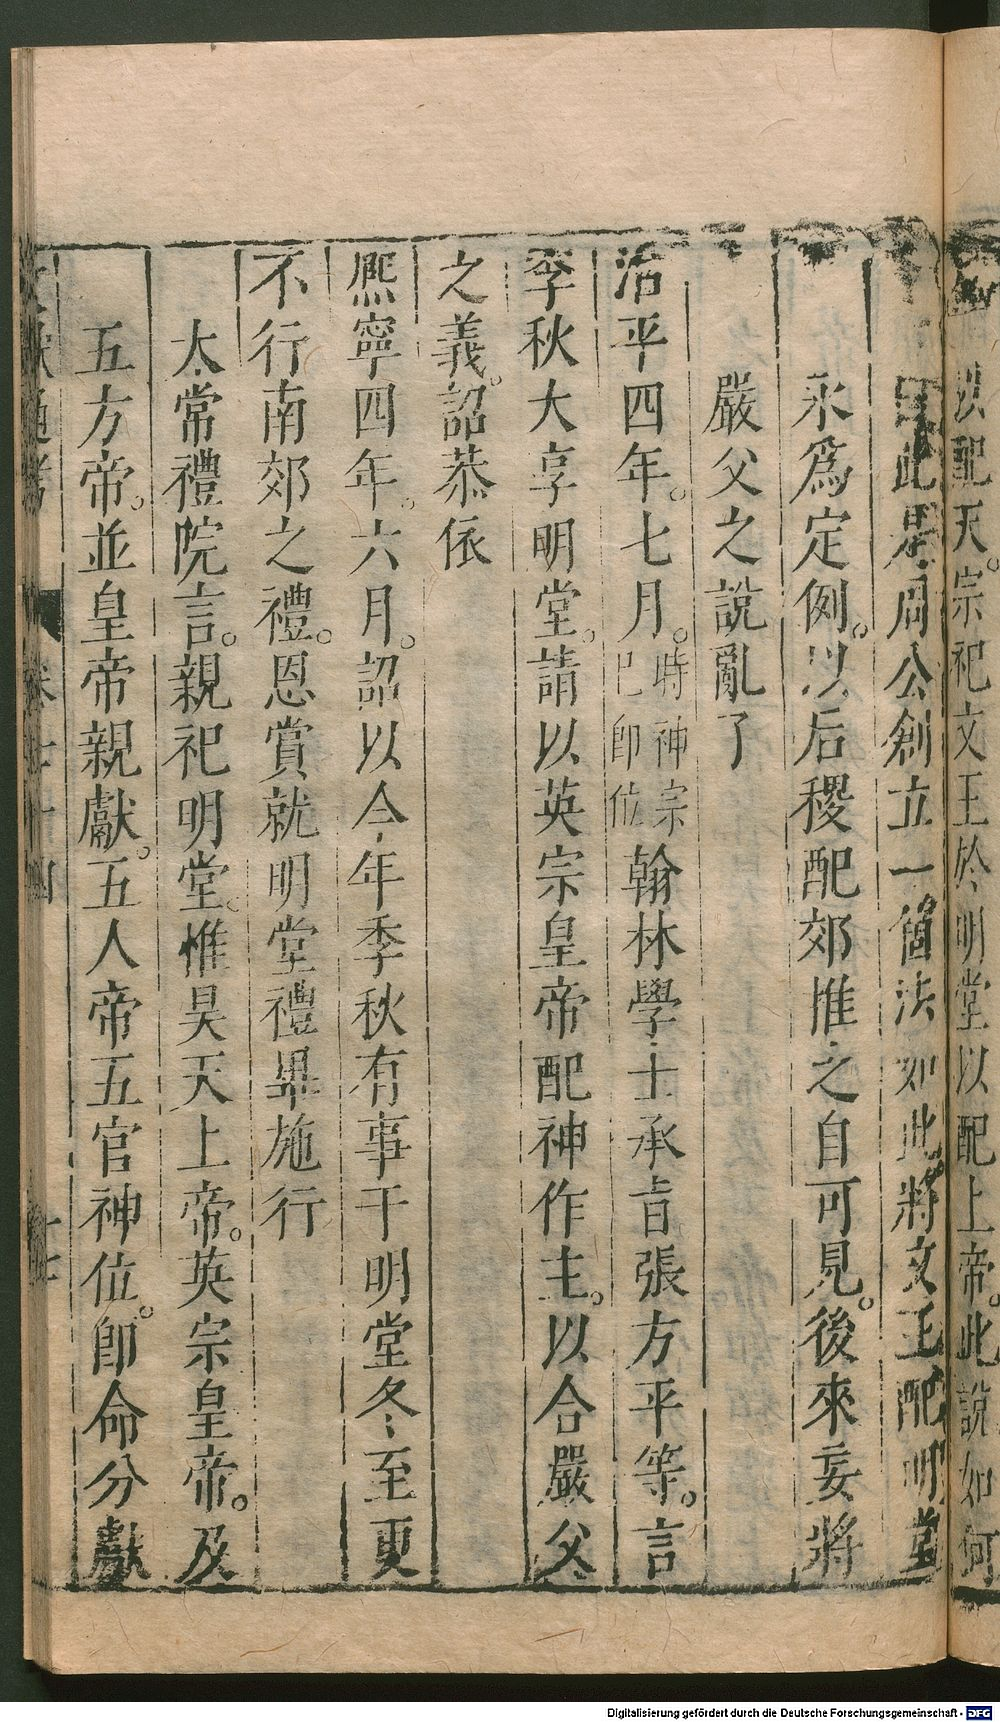 以配天。宗祀文王於明堂以配上帝。此說如何
曰此是周公創立一箇法如此將文王配明堂
永爲定例。以后稷配郊推之自可見。後來妄將
嚴父之說亂了
治平四年。七月。時神宗已即位翰林學士承旨張方平等。言
季秋大享明堂。請以英宗皇帝配神作主。以合嚴父
之義。詔恭依
熈寧四年。六月。詔以今年季秋有事于明堂冬至更
不行南郊之禮。恩賞就明堂禮畢施行
太常禮院言。親祀明堂。惟昊天上帝。英宗皇帝。及
五方帝。並皇帝親獻。五人帝五官神位。即命分獻
文獻通考 卷七十四 十七
Digitalisierung gefördert durch die Deutsche Forschungsgemeinschaft - DFG